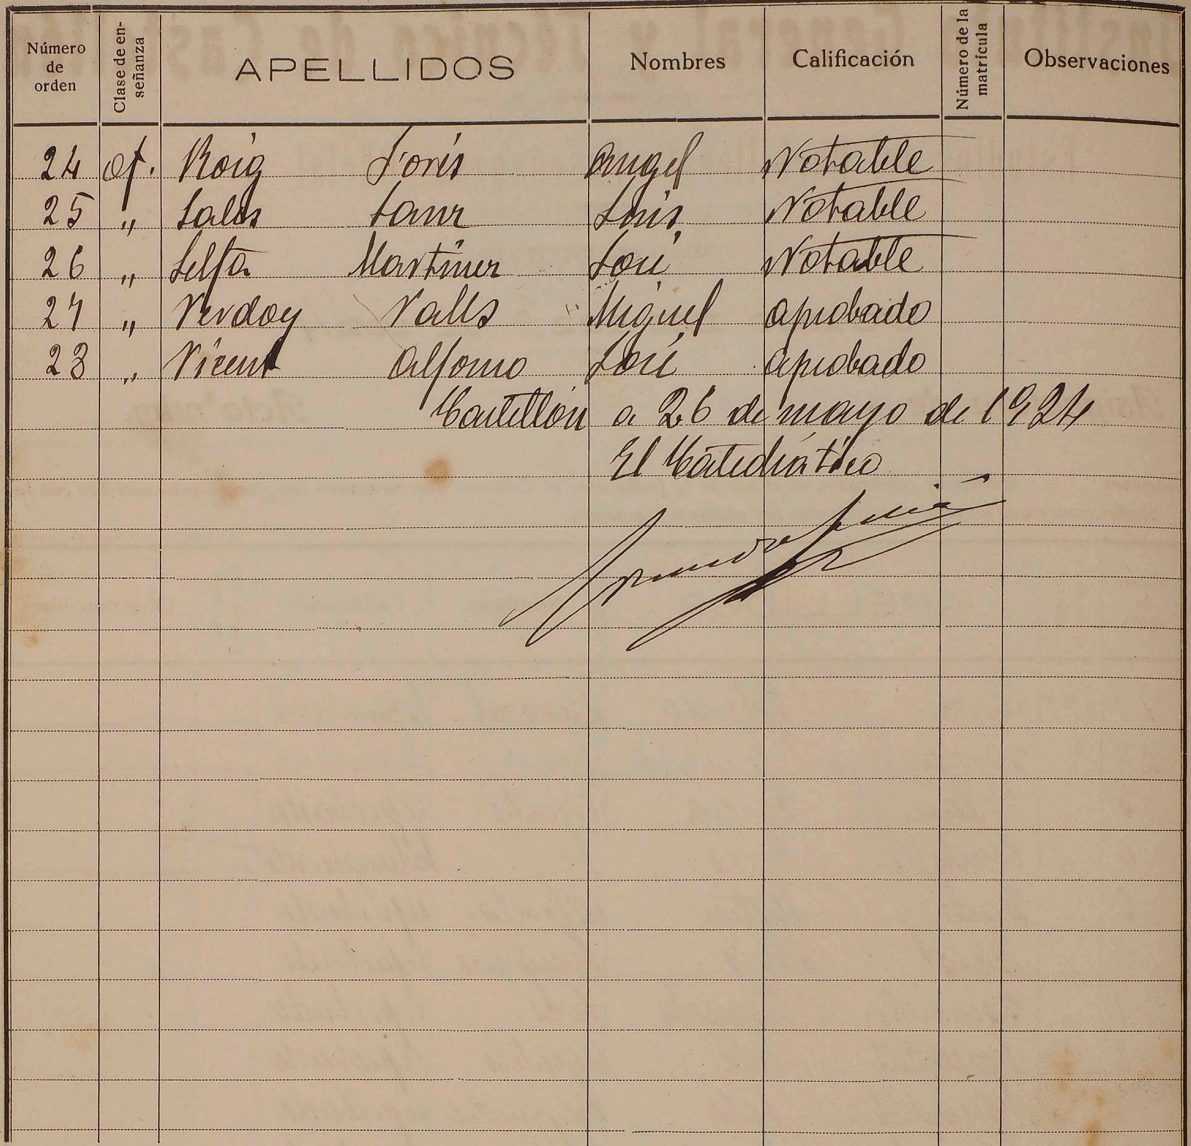 Número de orden Clase de en-señanza APELLIDOS Nombres Calificación Número de la matrícula Observaciones
24 of. Roig Forís Angel Notable
25 " Sales Sanz Luis Notable
26 " Selfa Martinez José Notable
27 " Verdoy Valls Miguel aprobado
28 " Vicent Alfonso José aprobado
Castellón a 26 de mayo de 1924
El Catedrático